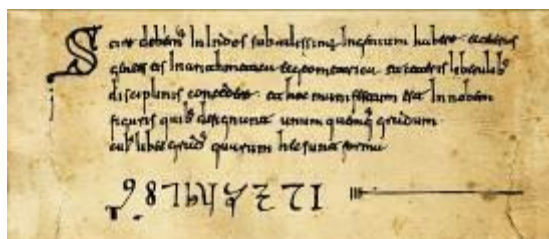 Scire debem⁹ In Indos subtilissimū Ingenium habere. et ceteras
gentes eis In arithmetica et geometrica et ceteris liberalib⁹
disciplinis concedere. et hoc manifestum est In nobem
figuris quib⁹ designant unum quemq; gradum
cuius libet grad⁹ quarum hec sunt forma
9 8 7 6 5 4 3 2 1